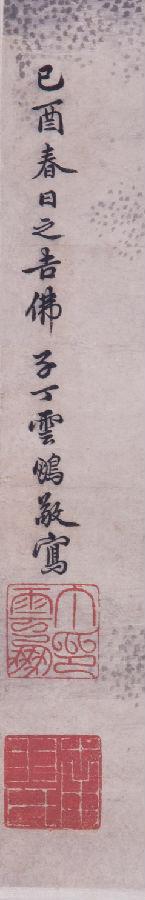 己酉春日之吉佛子丁雲鵬敬寫